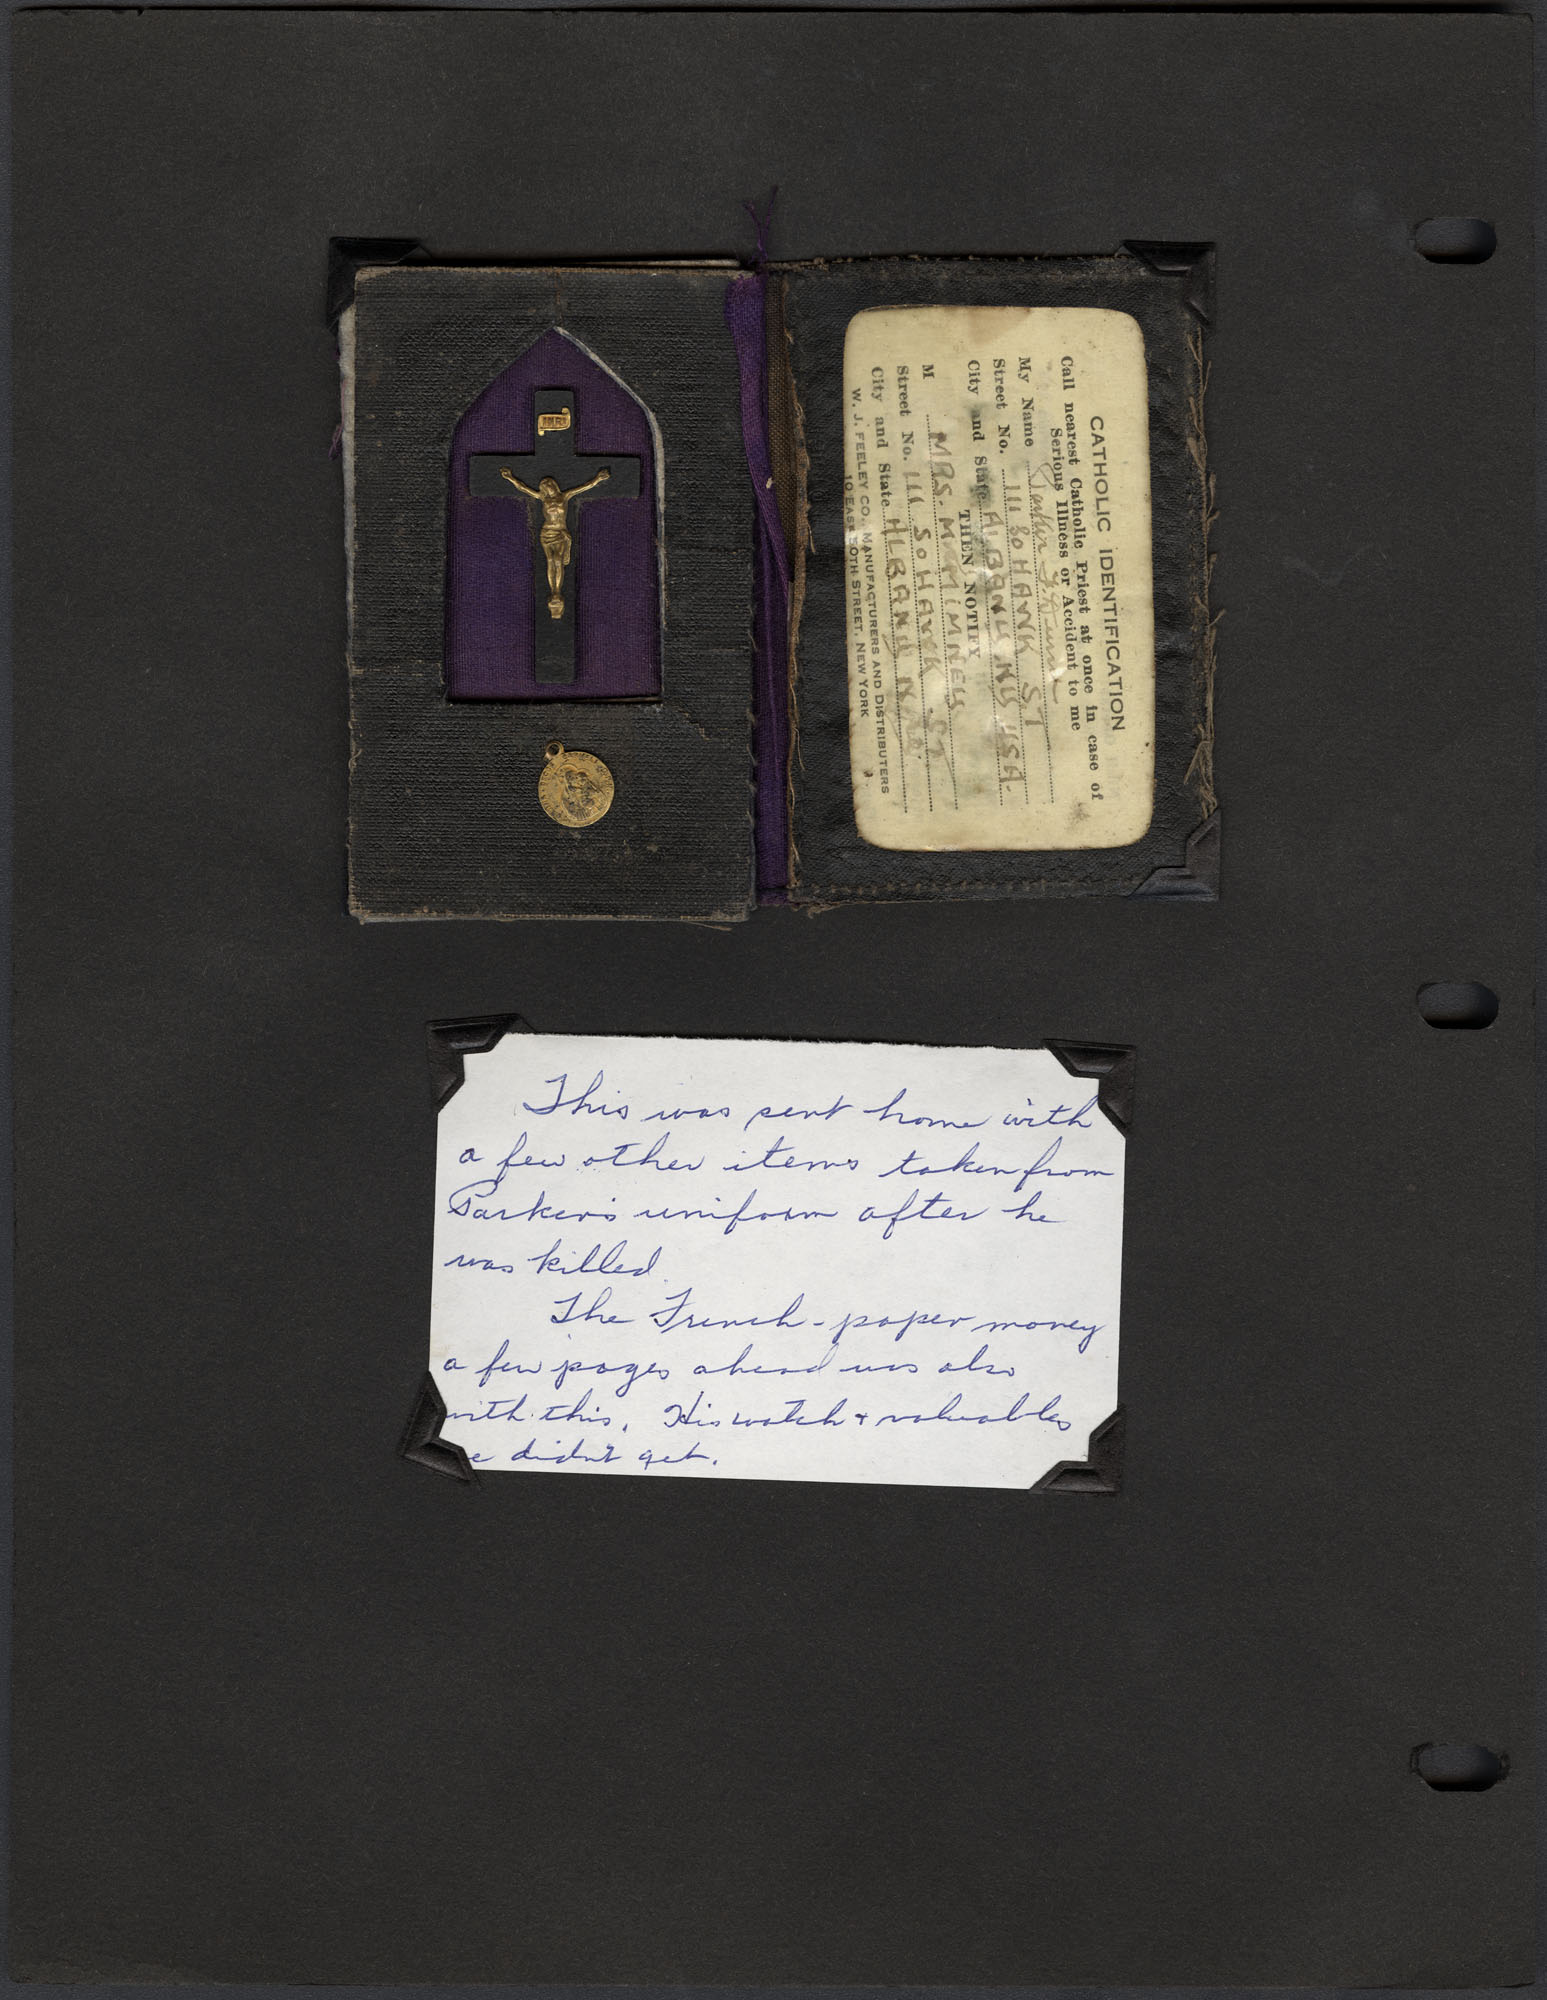 INRI
CATHOLIC IDENTIFICATION
Call nearest Catholic Priest at once in case of
Serious Illness or Accident to me
My Name Parker F. Dunn
Street No. 111 So HAWK ST
City and State ALBANY NY USA.
THEN NOTIFY
M MRS. M MIMNEY
Street No. 111 So HAWK ST
City and State ALBANY N
W. J. FEELEY CO., MANUFACTURERS AND DISTRIBUTERS
10 EAST 50TH STREET, NEW YORK
This was sent home with
a few other items taken from
Parker's uniform after he
was killed.
The French-paper money
a few pages ahead was also
with this. His watch + valuables
didn't get.